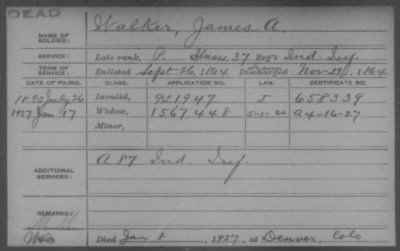 DEAD
NAME OF SOLDIER: Walker, James A.
SERVICE: Late rank, P. Unass, 37 Reg't Ind. Inf.
TERM OF SERVICE: Enlisted Sept 26, 1864 Discharged Nov 29, 1864
DATE OF FILING. CLASS. APPLICATION NO. LAW. CERTIFICATE NO.
1890 July 26 Invalid, 921947 J 658339
1927 Jan. 17 Widow, 1567448 5-1-20 A4-16-27
Minor,
ADDITIONAL SERVICES: A 87 Ind. Inf.
REMARKS:
Died Jan 8, 1927, at Denver, Colo